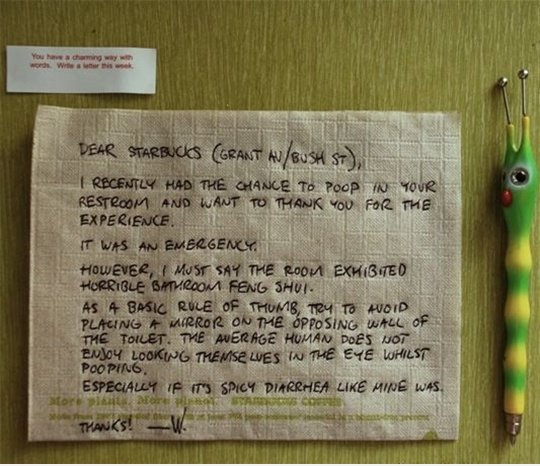 You have a charming way with
words. Write a letter this week.
DEAR STARBUCKS (GRANT AV/BUSH ST),
I RECENTLY HAD THE CHANCE TO POOP IN YOUR
RESTROOM AND WANT TO THANK YOU FOR THE
EXPERIENCE.
IT WAS AN EMERGENCY.
HOWEVER, I MUST SAY THE ROOM EXHIBITED
HORRIBLE BATHROOM FENG SHUI.
AS A BASIC RULE OF THUMB, TRY TO AVOID
PLACING A MIRROR ON THE OPPOSING WALL OF
THE TOILET. THE AVERAGE HUMAN DOES NOT
ENJOY LOOKING THEMSELVES IN THE EYE WHILST
POOPING.
ESPECIALLY IF IT'S SPICY DIARRHEA LIKE MINE WAS.
More plants. More planet. STARBUCKS COFFEE
THANKS! —W.